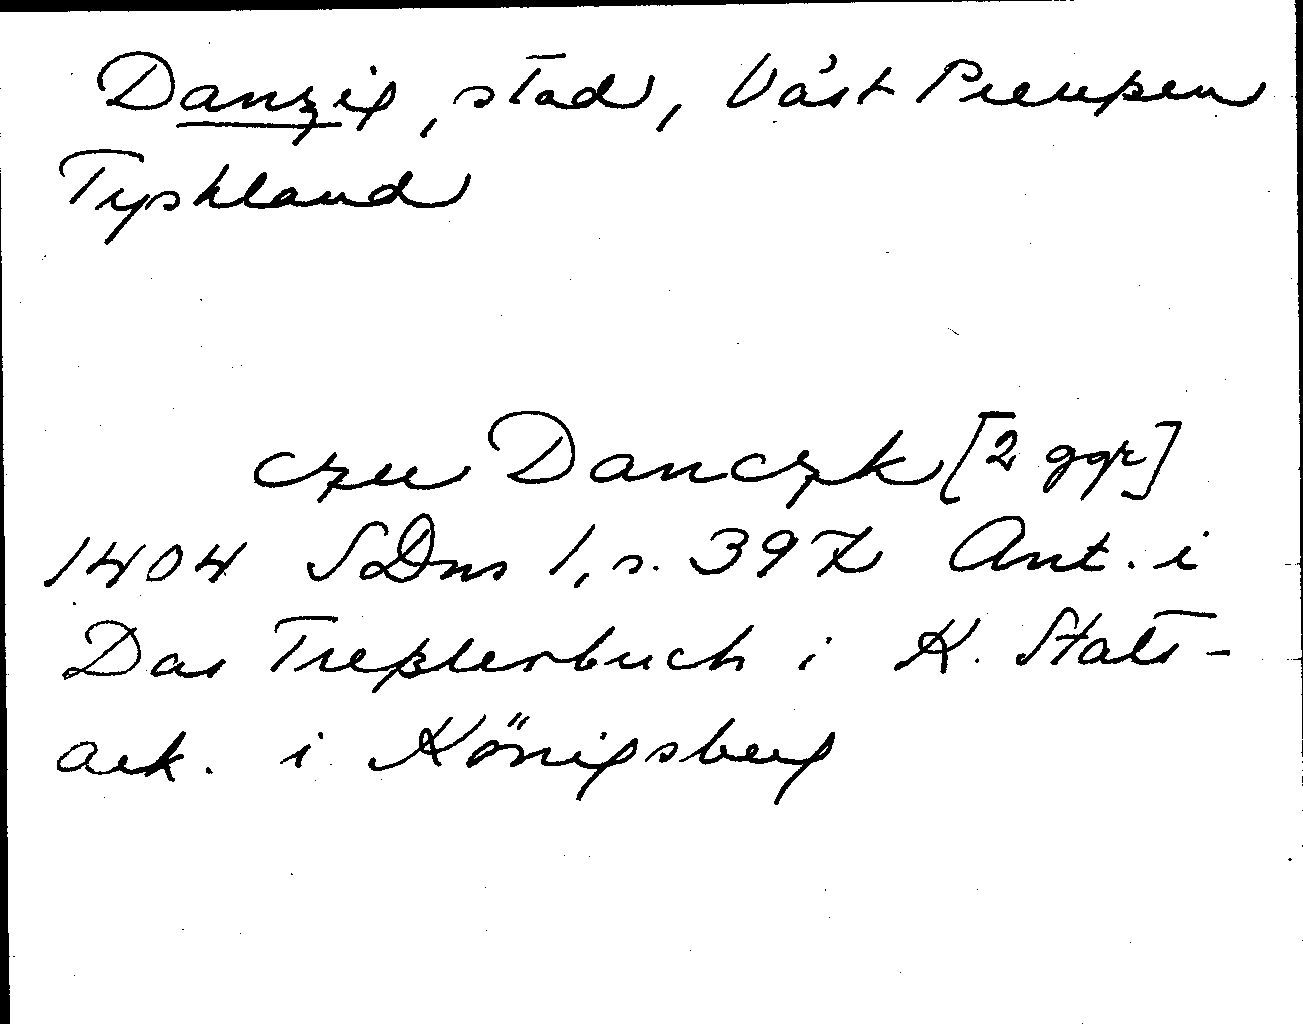 Danzig, stad, Väst Preußen
Tyskland
czu Danczk [2 ggr]
1404 SDns 1, s. 397 Ant. i
Das Treßlerbuch i K. Stats-
ark. i Königsberg